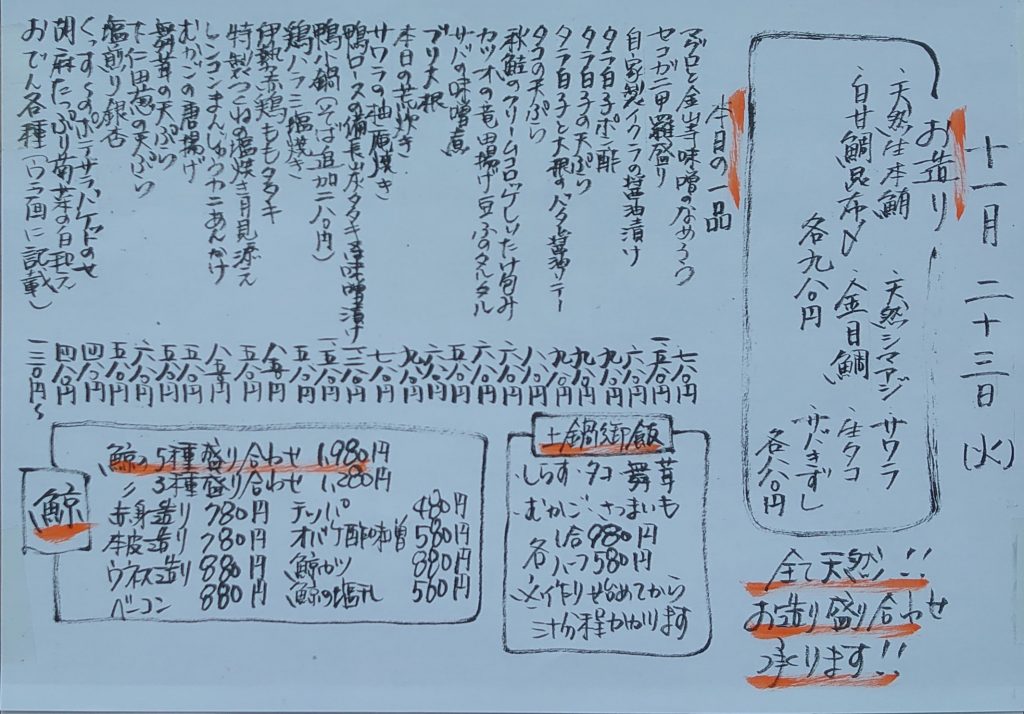 十一月 二十三日(火)
お造り
天然生本鮪 天然シマアジ サワラ
白甘鯛昆布〆 金目鯛 生タコ
各九八〇円 サバきずし
各六八〇円
全て天然!!
お造り盛り合わせ
承ります!!
本日の一品
マグロと金山寺味噌のなめろう 七八〇円
セコガニ甲羅盛り 一五八〇円
自家製イクラの醤油漬け 六八〇円
タラ白子ポン酢 九八〇円
タラ白子の天ぷら 九八〇円
タラ白子と大根のバター醤油ソテー 九八〇円
タコの天ぷら 八八〇円
秋鮭のクリームコロッケしいたけ包み 六八〇円
カツオの竜田揚げ豆ふのタルタル 六八〇円
サバの味噌煮 五八〇円
ブリ大根 六八〇円
本日の荒炊き 九八〇円
サワラの柚庵焼き 七八〇円
鴨ロースの備長炭タタキ 味噌漬け 一二八〇円
鴨小鍋(そば追加二八〇円) 一五八〇円
鶏ハラミ塩焼き 五八〇円
伊勢赤鶏ももタタキ 八八〇円
特製つくねの塩焼き月見添え 五八〇円
レンコンまんじゅうカニあんかけ
むかごの唐揚げ 五八〇円
舞茸の天ぷら 六八〇円
下仁田葱の天ぷら 五八〇円
塩煎り銀杏 四八〇円
胡麻たっぷり菊菜の白和え 四八〇円
おでん各種(ウラ面に記載) 一三〇円〜
土鍋御飯
・しらす・タコ・舞茸
・むかご・さつまいも
各 1合980円
ハーフ580円
※作り始めてから
三十分程かかります
鯨
鯨の5種盛り合わせ 1,980円
〃 3種盛り合わせ 1,280円
赤身造り 780円 テッパ 480円
本皮造り 780円 オバケ酢味噌 580円
ウネス造り 880円 鯨カツ 880円
ベーコン 880円 鯨の塩タレ 580円